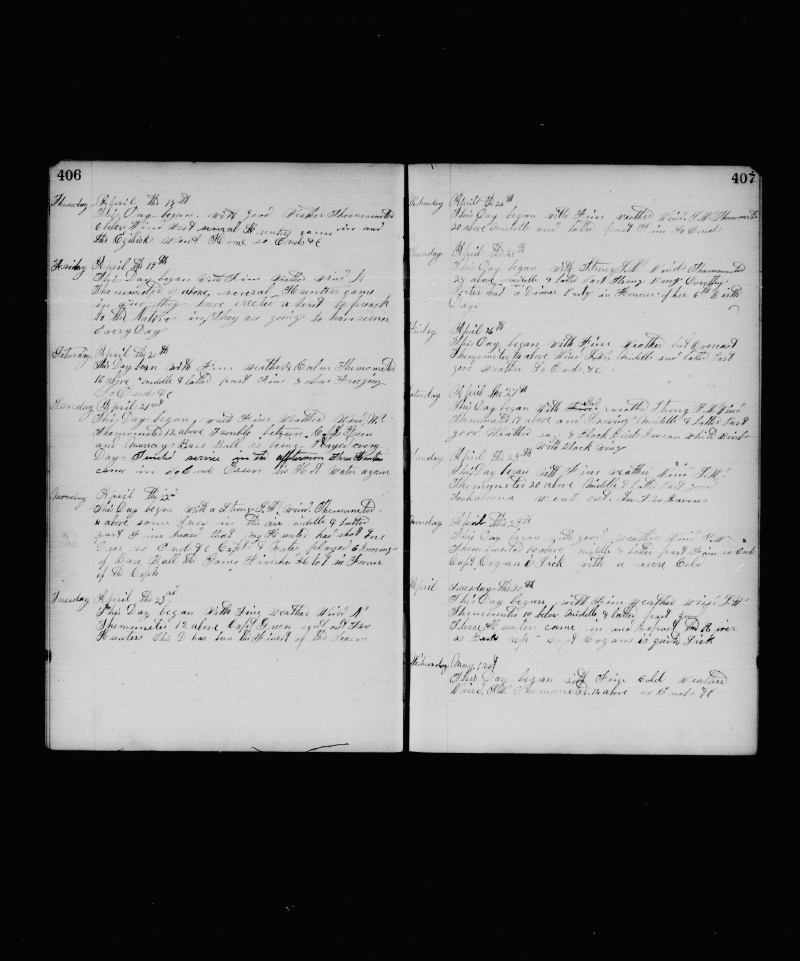 406
Thursday April the 18th
This Day began with good Weather Thermometer
Wind West several Hunters came in and
the went Home so Ends &c
Friday April the 19th
This Day began with Fine Weather Wind N
Thermometer above several Hunters came
in they have erected a tent to preach
to the Natives in, they are going to have service
Every Day
Saturday April the 20th
This Day began with Fine weather & Calm Thermometer
16 above middle & latter part Fine & above Freezing
So Ends &c
Sunday April 21st
This Day began with Fine Weather Wind W.
Thermometer 12 above Trouble between Capt Green
and Murray Base Ball is being Played every
Day Divine service in the afternoon Three Hunters
came in so Ends Green in Hot Water again
Monday April the 22nd
This Day began with a Strong S.W. wind Thermometer
above some Snow in the air middle & latter
part Fine heard that my Hunter had shot One
Deer so Ends &c Capt & Mates played 6 Innings
of Base Ball the Game Finished 16 to 1 in Favor
of the Capts
Tuesday April the 23rd
This Day began with Fine weather Wind N
Thermometer 12 above Capt Green sent out Two
Hunters This D has been the Finest of the Season
407
Wednesday April the 24th
This Day began with Fine weather Wind S.W. Thermometer
20 above middle and latter part Fine So Ends
Thursday April the 25th
This Day began with Strong S.W. Winds Thermometer
above middle & latter part Strong Wind Dorothy
Porter had a Dinner Party in Honour of her 6th Birth
Day
Friday April 26th
This Day began with Fine Weather but Overcast
Thermometer above Wind S.W. middle and latter part
good weather So Ends &c
Saturday April the 27th
This Day began with weather Strong S.W. Wind
Thermometer above and Snowing middle & latter part
good Weather saw 4 Black Birds Swan white Birds
with black wing
Sunday April the 28th
This Day began with Fine weather Wind S.W.
Thermometer 20 above middle & latter part good
went out
Monday April the 29th
This Day began with good weather Wind N.W.
Thermometer above middle & latter part Fine so Ends
Capt Cogan is Sick with a severe Cold
April Tuesday the 30th
This Day began with Fine weather Wind S.W.
Thermometer 10 below middle & latter part fine
Three Hunters came in and Report The River
as up Capt Cogan is quite Sick
Wednesday May 1st
This Day began with Fine Cold weather
Wind S.W. Thermometer above so Ends &c